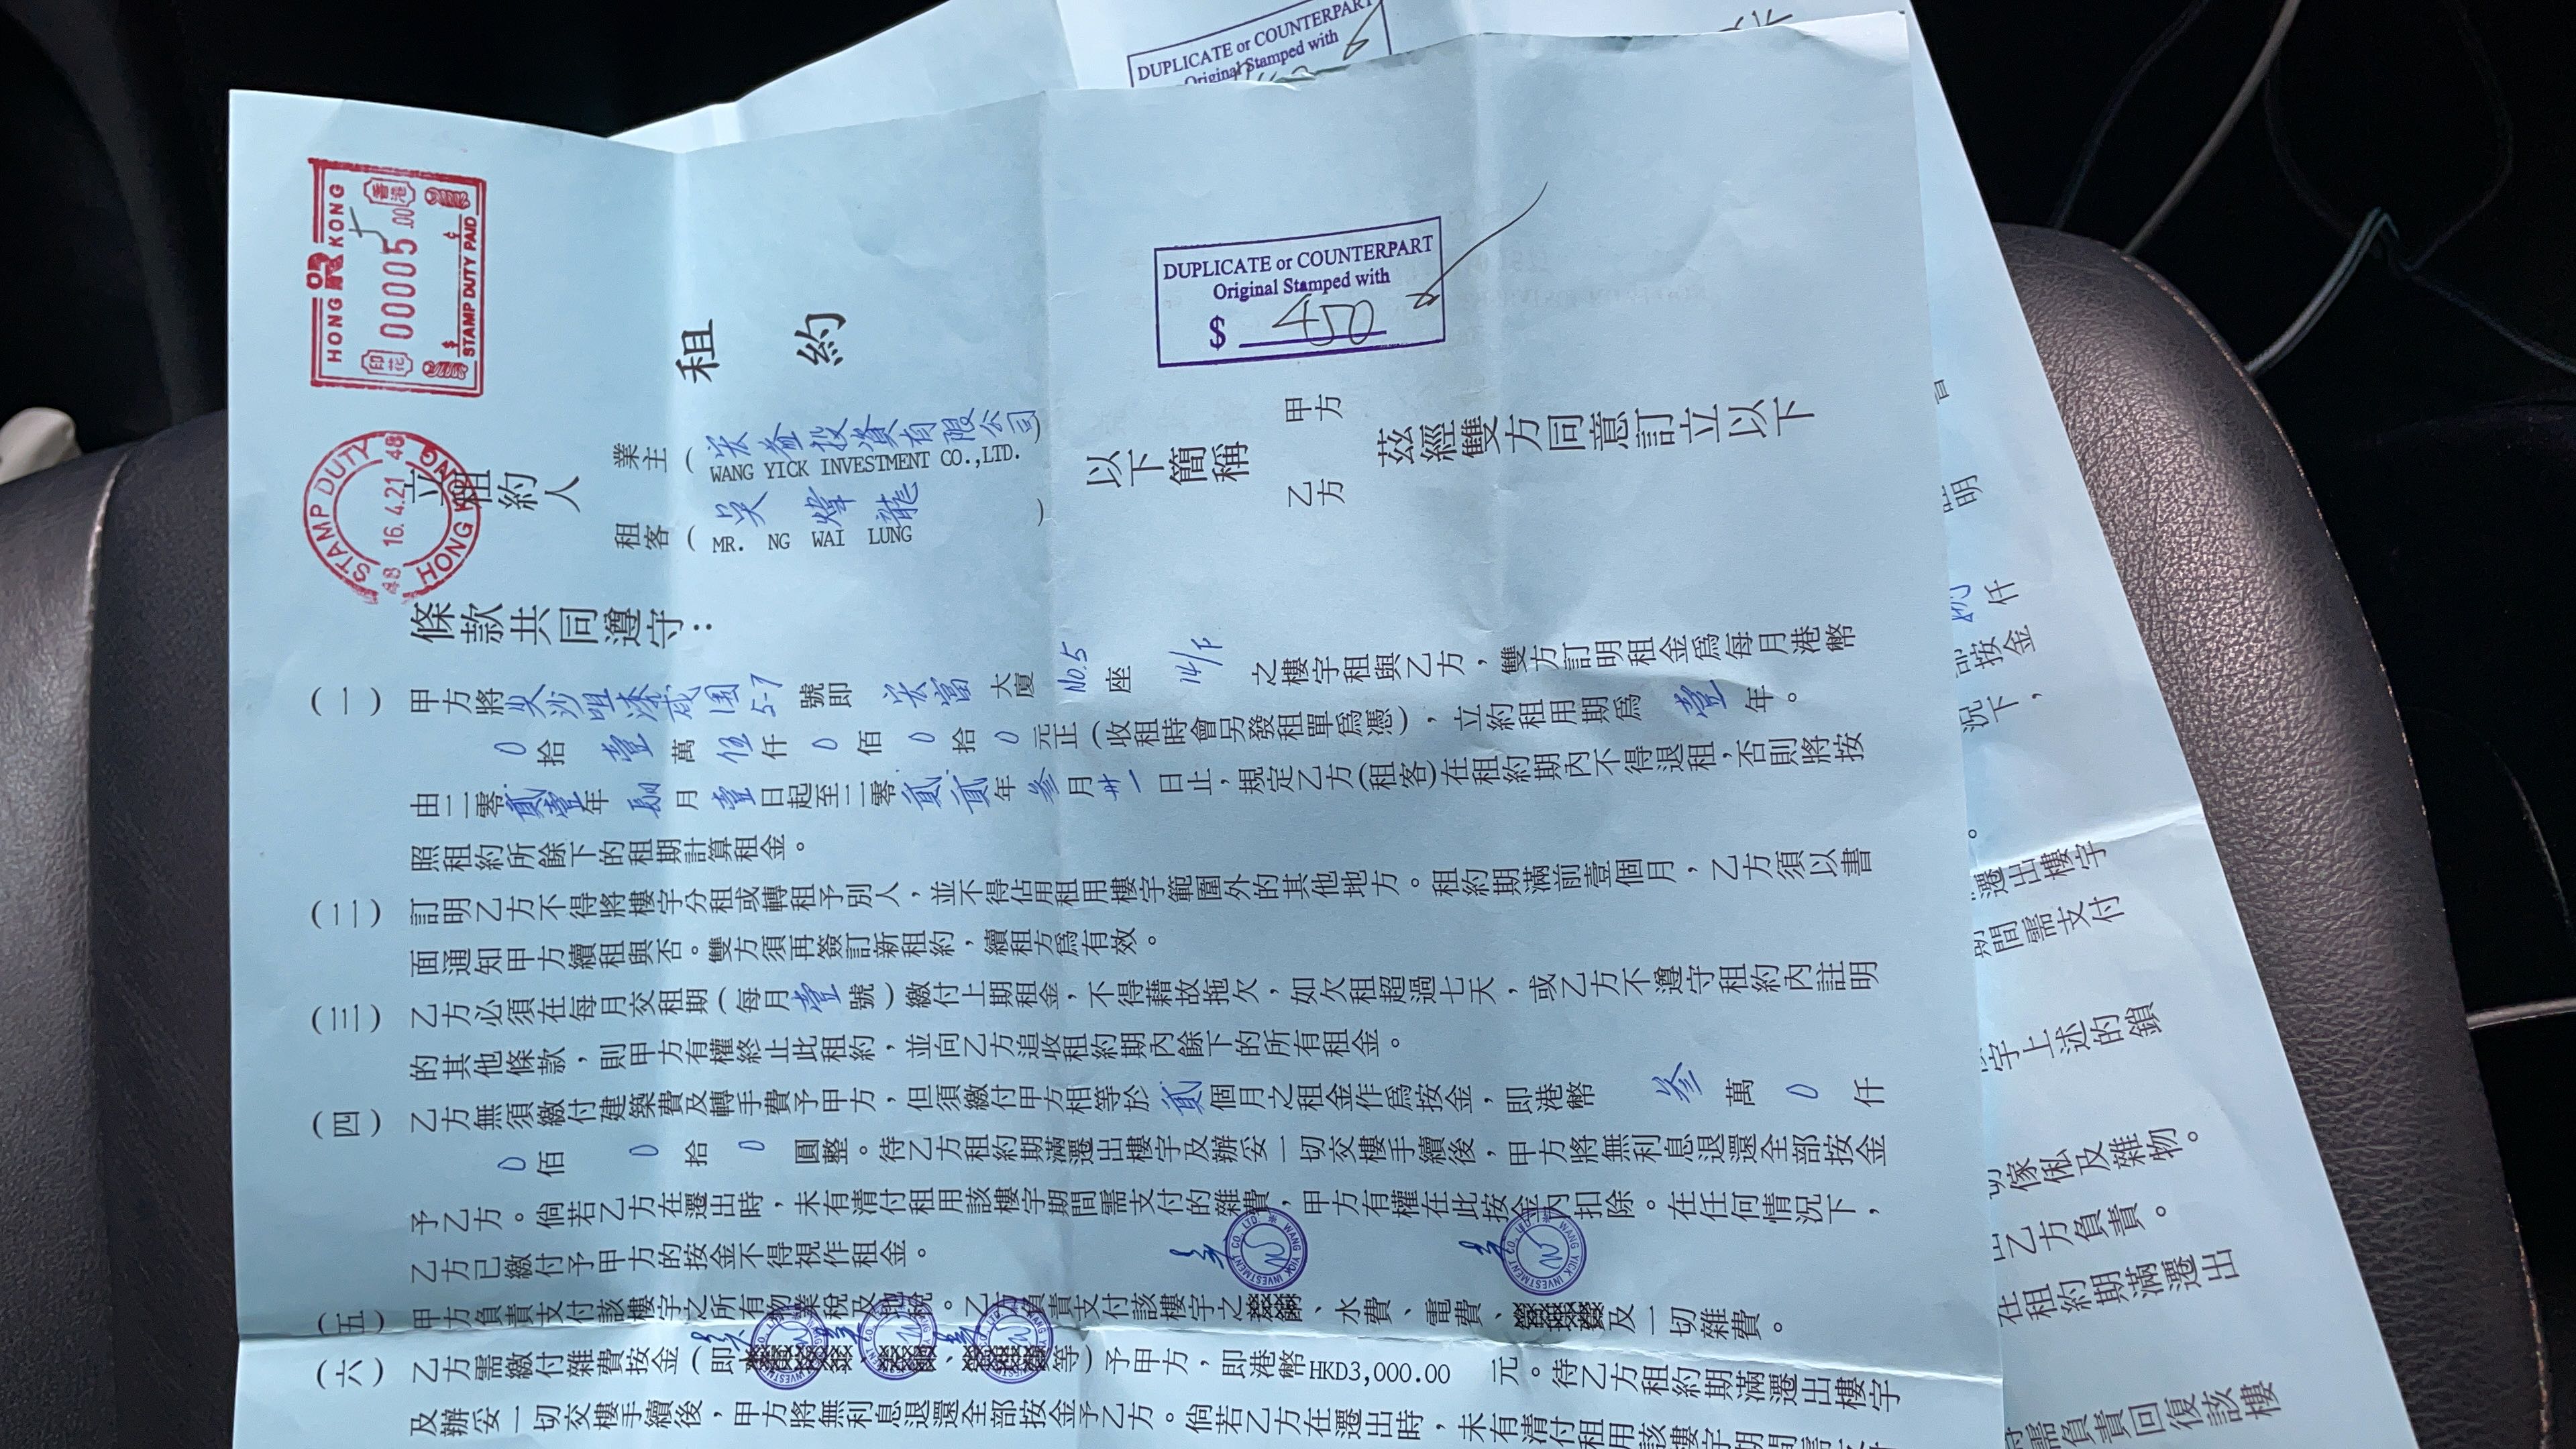 DUPLICATE or COUNTERPART
Original Stamped with
HONG KONG
香港
印花
000005.00
$
¢
STAMP DUTY PAID
STAMP DUTY
48 16.4.21 48
HONG KONG
租約
DUPLICATE or COUNTERPART
Original Stamped with
$ 450
立租約人
業主(宏益投資有限公司)
WANG YICK INVESTMENT CO.,LTD.
租客(吳煒龍)
MR. NG WAI LUNG
以下簡稱
甲方
乙方
茲經雙方同意訂立以下
條款共同遵守:
(一) 甲方將尖沙咀漆咸圍5-7號即宏富大廈No.5座14/F之樓宇租與乙方,雙方訂明租金為每月港幣
0拾壹萬伍仟0佰0拾0元正(收租時會另發租單爲憑),立約租用期爲壹年。
由二零貳壹年肆月壹日起至二零貳貳年叁月卅一日止,規定乙方(租客)在租約期內不得退租,否則將按
照租約所餘下的租期計算租金。
(二) 訂明乙方不得將樓宇分租或轉租予別人,並不得佔用租用樓宇範圍外的其他地方。租約期滿前壹個月,乙方須以書
面通知甲方續租與否。雙方須再簽訂新租約,續租方爲有效。
(三) 乙方必須在每月交租期(每月壹號)繳付上期租金,不得藉故拖欠,如欠租超過七天,或乙方不遵守租約內註明
的其他條款,則甲方有權終止此租約,並向乙方追收租約期內餘下的所有租金。
(四) 乙方無須繳付建築費及轉手費予甲方,但須繳付甲方相等於貳個月之租金作爲按金,即港幣叁萬0仟
0佰0拾0圓整。待乙方租約期滿遷出樓宇及辦妥一切交樓手續後,甲方將無利息退還全部按金
予乙方。倘若乙方在遷出時,未有清付租用該樓宇期間需支付的雜費,甲方有權在此按金內扣除。在任何情況下,
乙方已繳付予甲方的按金不得視作租金。
(五) 甲方負責支付該樓宇之所有物業稅及地稅。乙方負責支付該樓宇之、水費、電費、及一切雜費。
(六) 乙方需繳付雜費按金(即等)予甲方,即港幣HKD3,000.00元。待乙方租約期滿遷出樓宇
及辦妥一切交樓手續後,甲方將無利息退還全部按金予乙方。倘若乙方在遷出時,未有清付租用該樓宇期間需支付
WANG YICK INVESTMENT CO. LTD
WANG YICK INVESTMENT CO. LTD
仟
按金
況下,
遷出樓宇
期間需支付
字上述的鎖
傢俬及雜物。
乙方負責。
在租約期滿遷出
需負責回復該樓